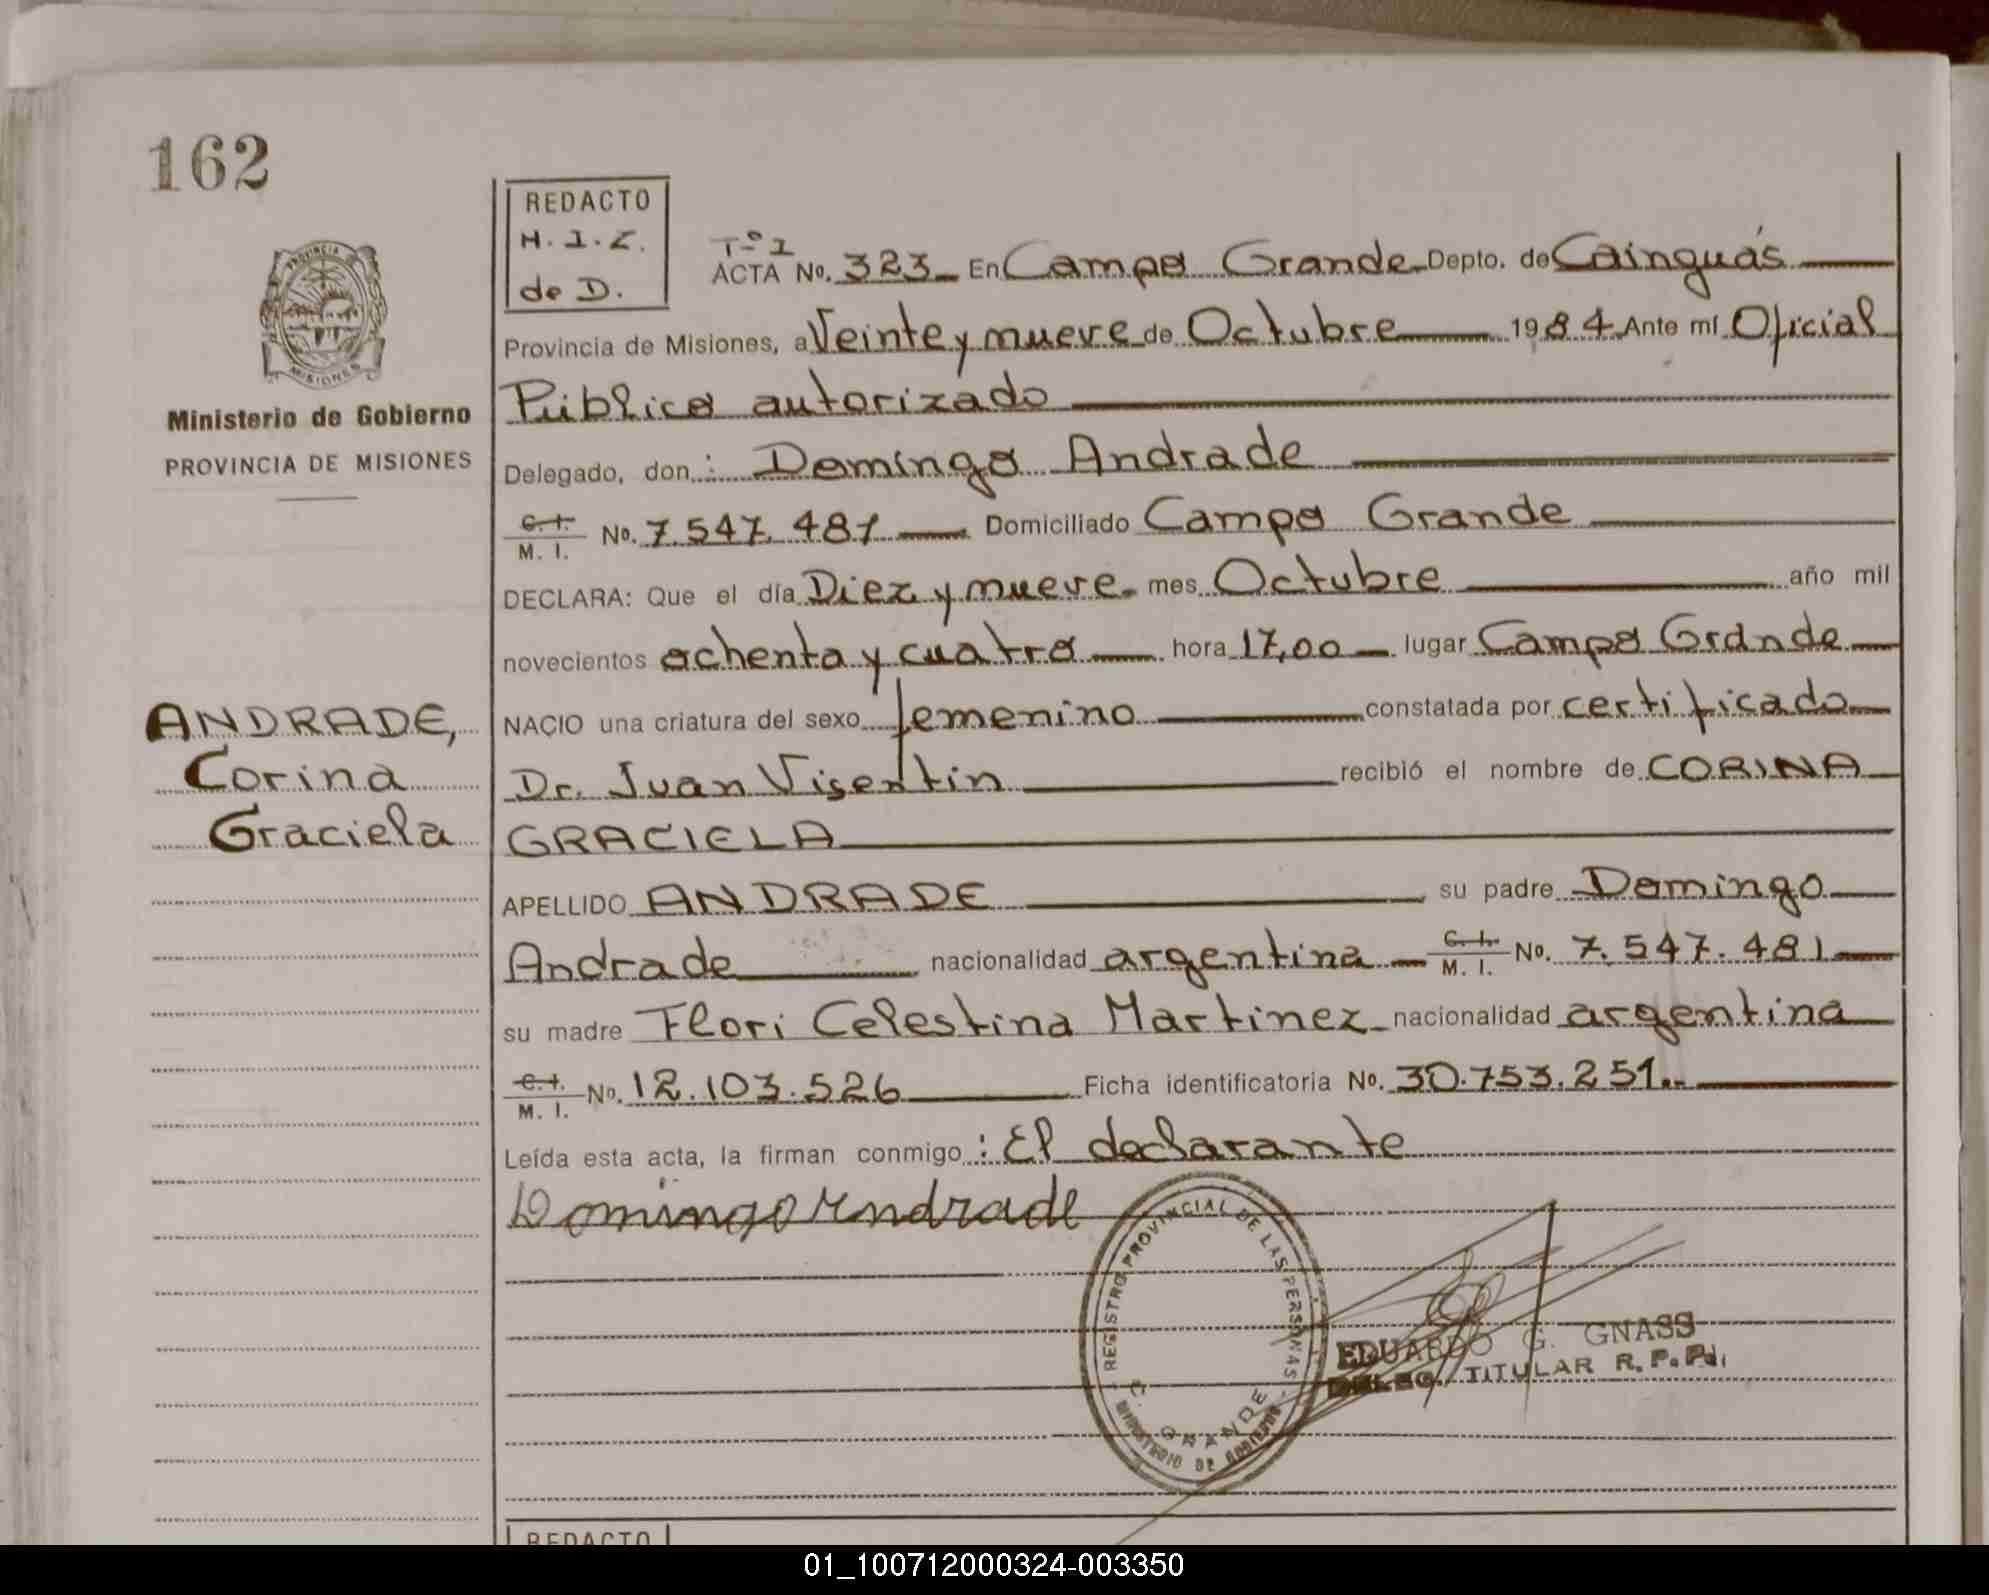 162
PROVINCIA
MISIONES
Ministerio de Gobierno
PROVINCIA DE MISIONES
ANDRADE,
Corina
Graciela
REDACTO
H. I. Z.
de D.
Tº 1
ACTA No. 323 En Campo Grande Depto. de Cainguás
Provincia de Misiones, a Veinte y nueve de Octubre 1984 Ante mí Oficial
Público autorizado
Delegado, don : Domingo Andrade
C.I. / M. I. No. 7.547.481 Domiciliado Campo Grande
DECLARA: Que el día Diez y nueve mes Octubre año mil
novecientos ochenta y cuatro hora 17,00 lugar Campo Grande
NACIO una criatura del sexo femenino constatada por certificado
Dr. Juan Visentin recibió el nombre de CORINA
GRACIELA
APELLIDO ANDRADE su padre Domingo
Andrade nacionalidad argentina C.I. / M. I. No. 7.547.481
su madre Flori Celestina Martinez nacionalidad argentina
C.I. / M. I. No. 12.103.526 Ficha identificatoria No. 30.753.251..
Leída esta acta, la firman conmigo : El declarante
Domingo Andrade
REGISTRO PROVINCIAL DE LAS PERSONAS
C. GRANDE
MINISTERIO DE GOBIERNO
EDUARDO G. GNASS
DELEG. TITULAR R. P. Pd.
REDACTO
01_100712000324-003350